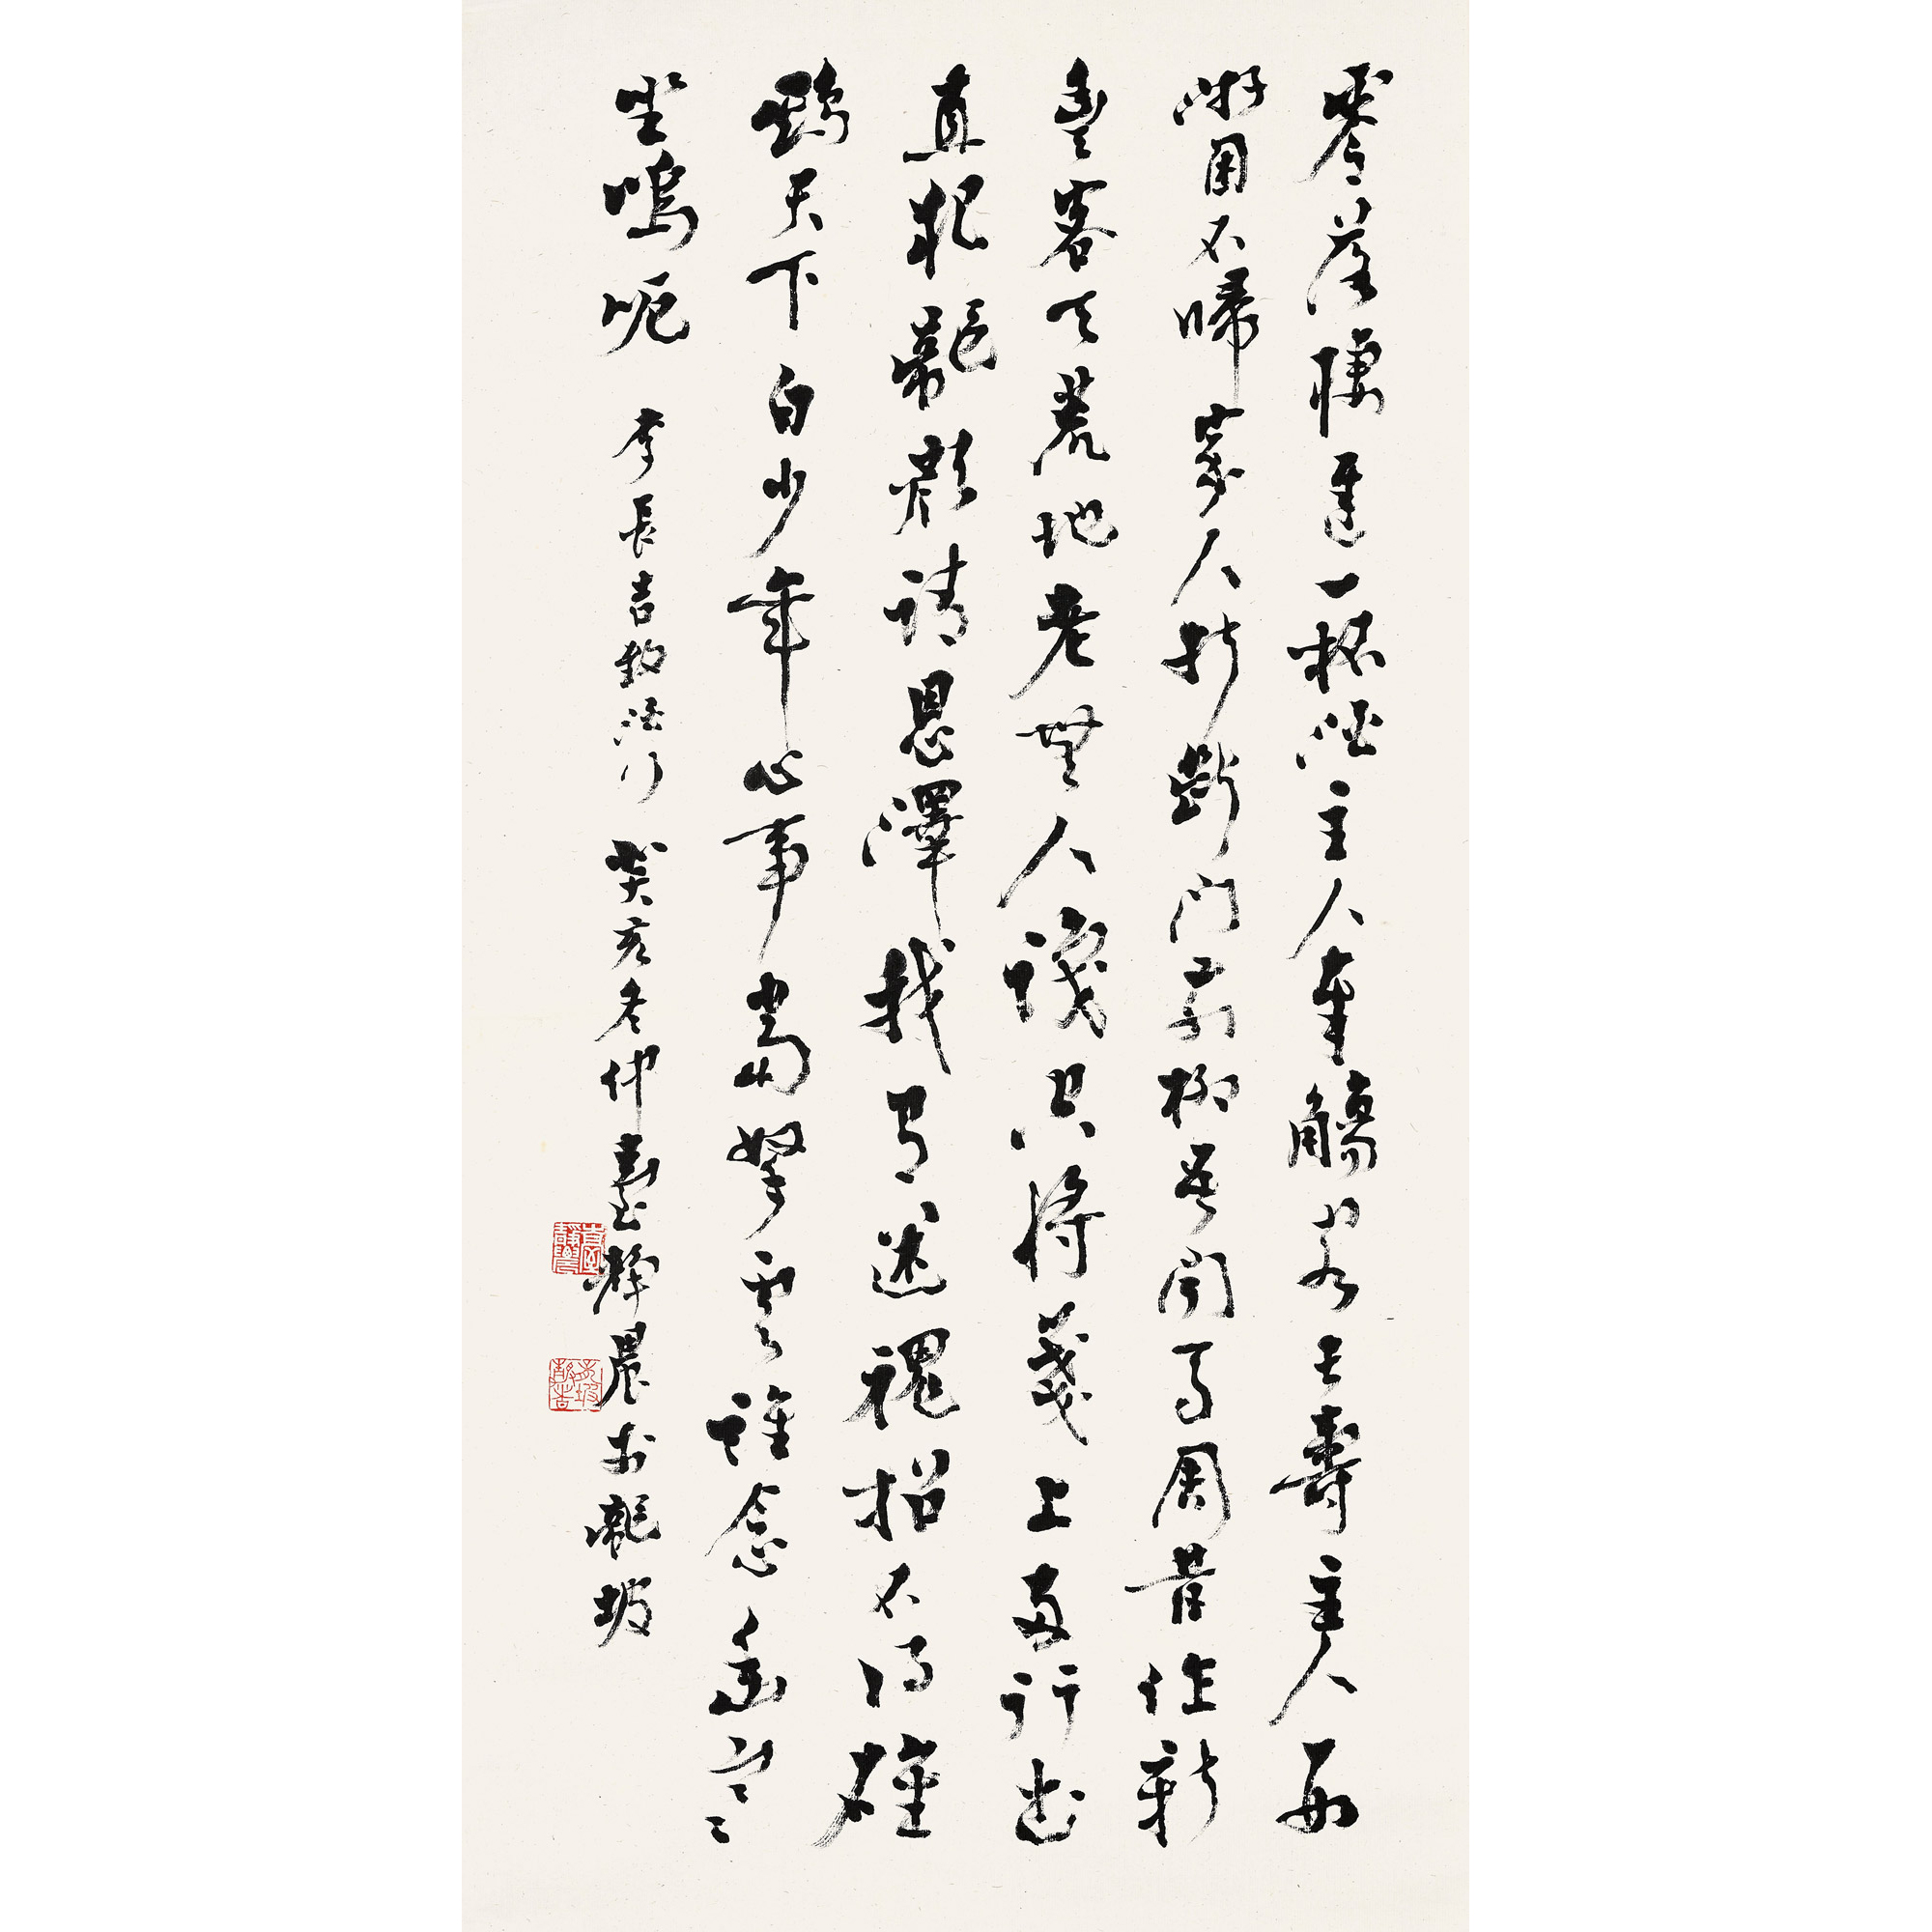 零落棲遲一杯酒主人奉觴客長壽主人西
游困不歸家人折斷門前柳吾聞馬周昔作新
豐客天荒地老無人識只將箋上兩行書
直犯龍顏請恩澤我有迷魂招不得雄
鷄天下白少年心事當拏雲誰念幽寒
坐嗚呃 李長吉致酒行 癸亥冬仲臺靜農於龍坡
臺靜農